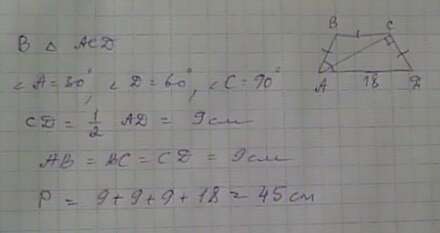 В △ ACD
∠A = 30°, ∠D = 60°, ∠C = 90°
CD = 1/2 AD = 9 см
AB = BC = CD = 9 см
P = 9 + 9 + 9 + 18 = 45 см
B C
A 18 D